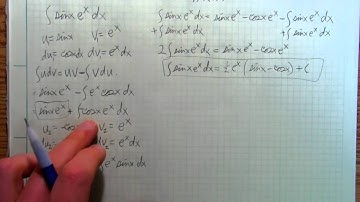 ∫sinx eˣ dx
u = sinx   v = eˣ
du = cosxdx   dv₁ = eˣdx
∫udv = uv - ∫vdu.
= sinx eˣ - ∫eˣ cosx dx
sinx eˣ + ∫cosx eˣ dx
u₂ = -cosx   v₂ = eˣ
du₂   dv₂ = eˣ dx
eˣ sinx dx
∫sinx eˣ dx = sinx eˣ - cosx eˣ - ∫sinx eˣ dx
+ ∫sinx eˣ dx   + ∫sinx eˣ dx
2∫sinx eˣ dx = sinx eˣ - cosx eˣ
∫sinx eˣ dx = ½ eˣ (sinx - cosx) + C